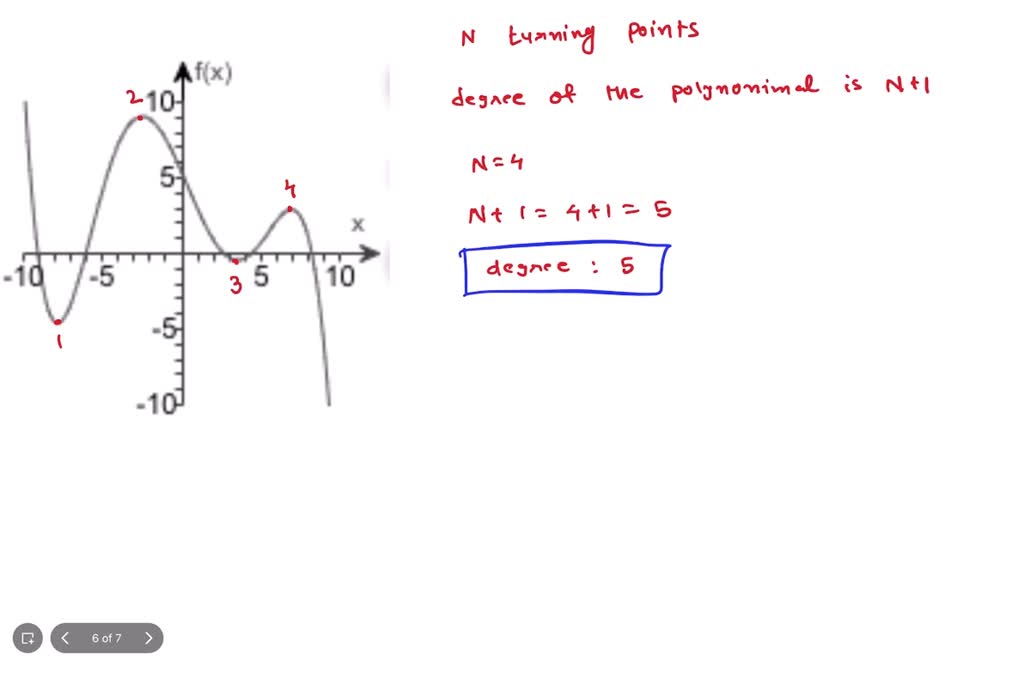 N turning points
degree of the polynonimal is N+1
N=4
N+1=4+1=5
degree : 5
f(x)
2
10
5
4
x
-10
-5
3
5
10
1
-5
-10
6 of 7